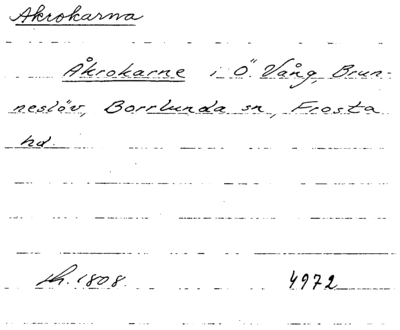 Åkrokarna
Åkrokarne i Ö. Vång, Brun-
neslöv, Borrlunda sn, Frosta
hd.
Sk. 1808 4972